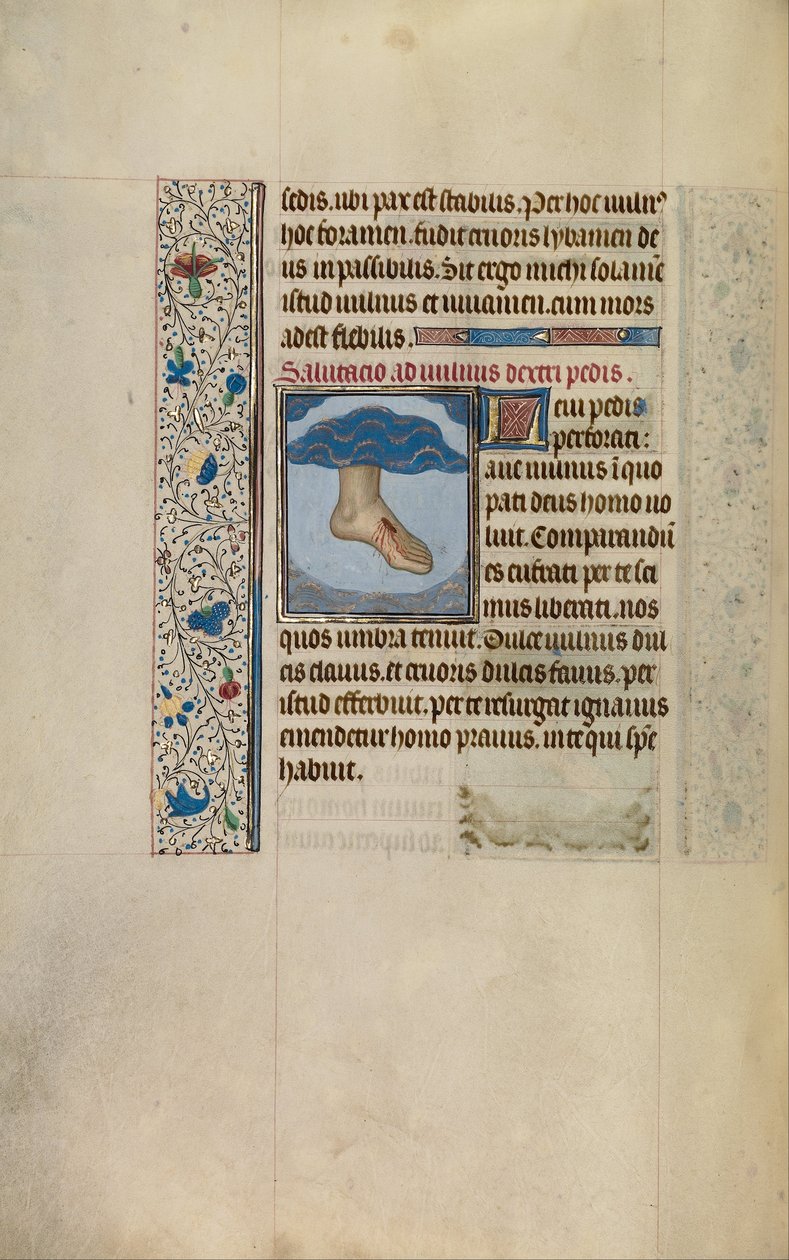 sedis. ubi pax est stabilis. Per hoc uulnꝰ
hoc foramen. fudit cruoris lybamen de
us inpassibilis. Sit ergo michi solam̄e
istud uulnus et iuuamen. cum mors
adest flebilis.
Salutacio ad uulnus dextri pedis.
Leui pedis
perforati:
aue uulnus ī quo
pati deus homo uo
luit. Comparandū
es
per te sci
mus liberati. nos
quos umbra tenuit. Dulce uulnus dul
cis clauus. et cruoris dulcis fauus. per
istud efferbuit. per te resurgat ignauus
emendetur homo prauus. in te qui spē
habuit.